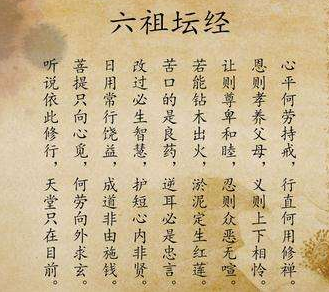 六祖坛经
心平何劳持戒，行直何用修禅。
恩则孝养父母，义则上下相怜。
让则尊卑和睦，忍则众恶无喧。
若能钻木出火，淤泥定生红莲。
苦口的是良药，逆耳必是忠言。
改过必生智慧，护短心内非贤。
日用常行饶益，成道非由施钱。
菩提只向心觅，何劳向外求玄。
听说依此修行，天堂只在目前。